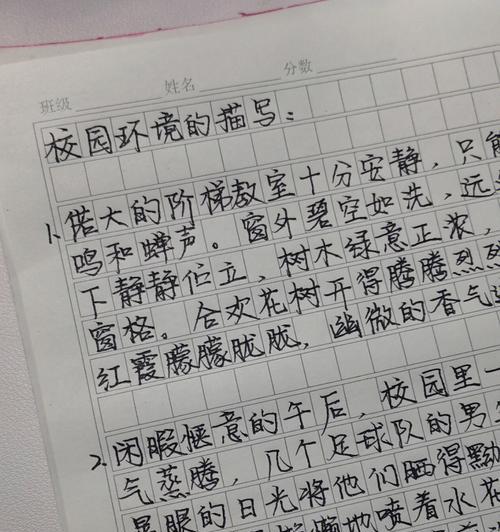 班级 姓名 分数
校园环境的描写：
1. 偌大的阶梯教室十分安静，只能
鸣和蝉声。窗外碧空如洗，远
下静静伫立，树木绿意正浓，
窗格。合欢花树开得腾腾烈烈
红霞朦朦胧胧，幽微的香气
2. 闲暇惬意的午后，校园里一
气蒸腾，几个足球队的男生
眼的日光将他们晒得黝
地喷着水花